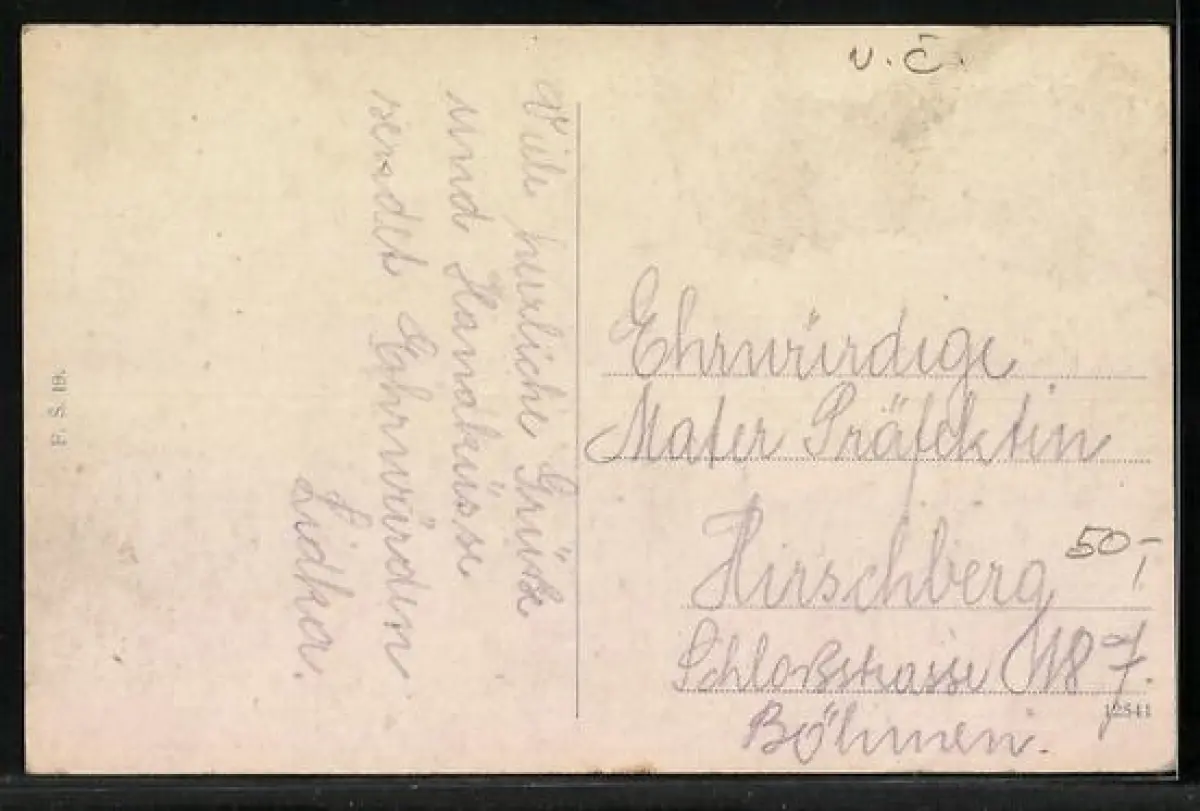 v. č.
Viele herzliche Grüße
und Handküsse
sendet Eahrwürden
Lidka.
Ehrwürdige
Mater Präfektin
Hirschberg
50,-
Schloßstrasse 7.
Böhmen.
F. S. 19.
12541